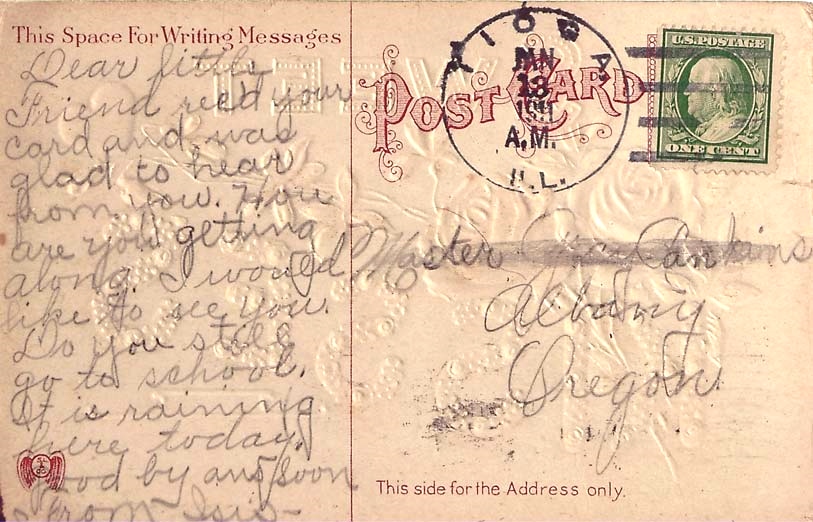 This Space For Writing Messages
Dear little
Friend rec'd your
card and was
glad to hear
from you. How
are you getting
along. I would
like to see you.
Do you still
go to school.
It is raining
here today.
good by ans soon
From Isis-
POST CARD
KIOWA
JAN
13
1911
A.M.
ILL.
U.S. POSTAGE
ONE CENT
Master Rankins
Albany
Oregon
This side for the Address only.